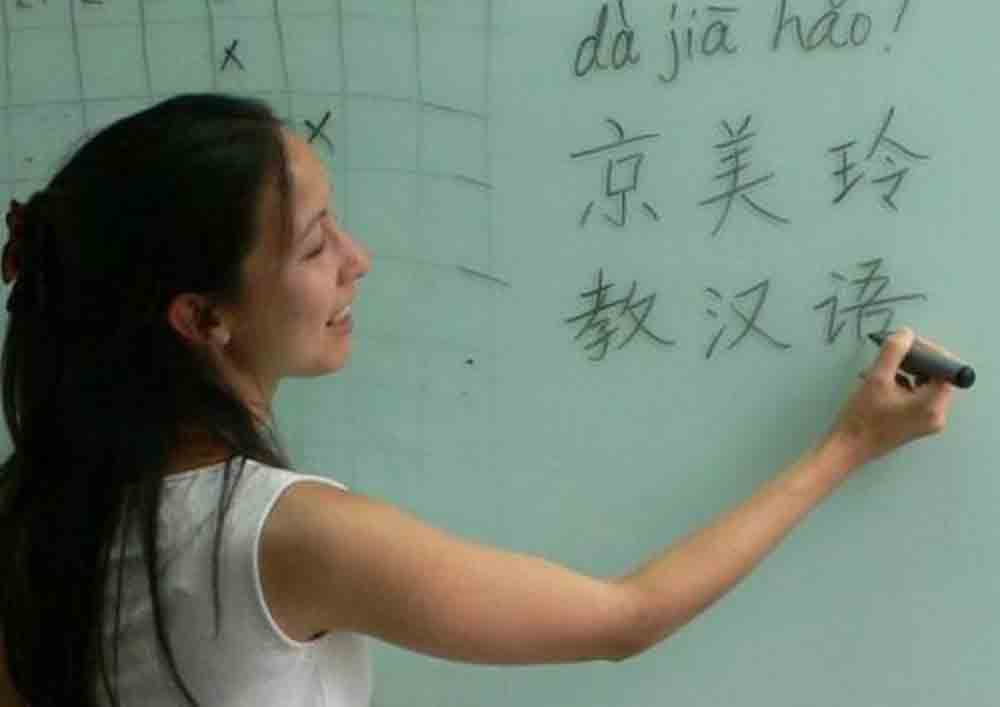 dà jiā hǎo!
京美玲
教汉语
x
x